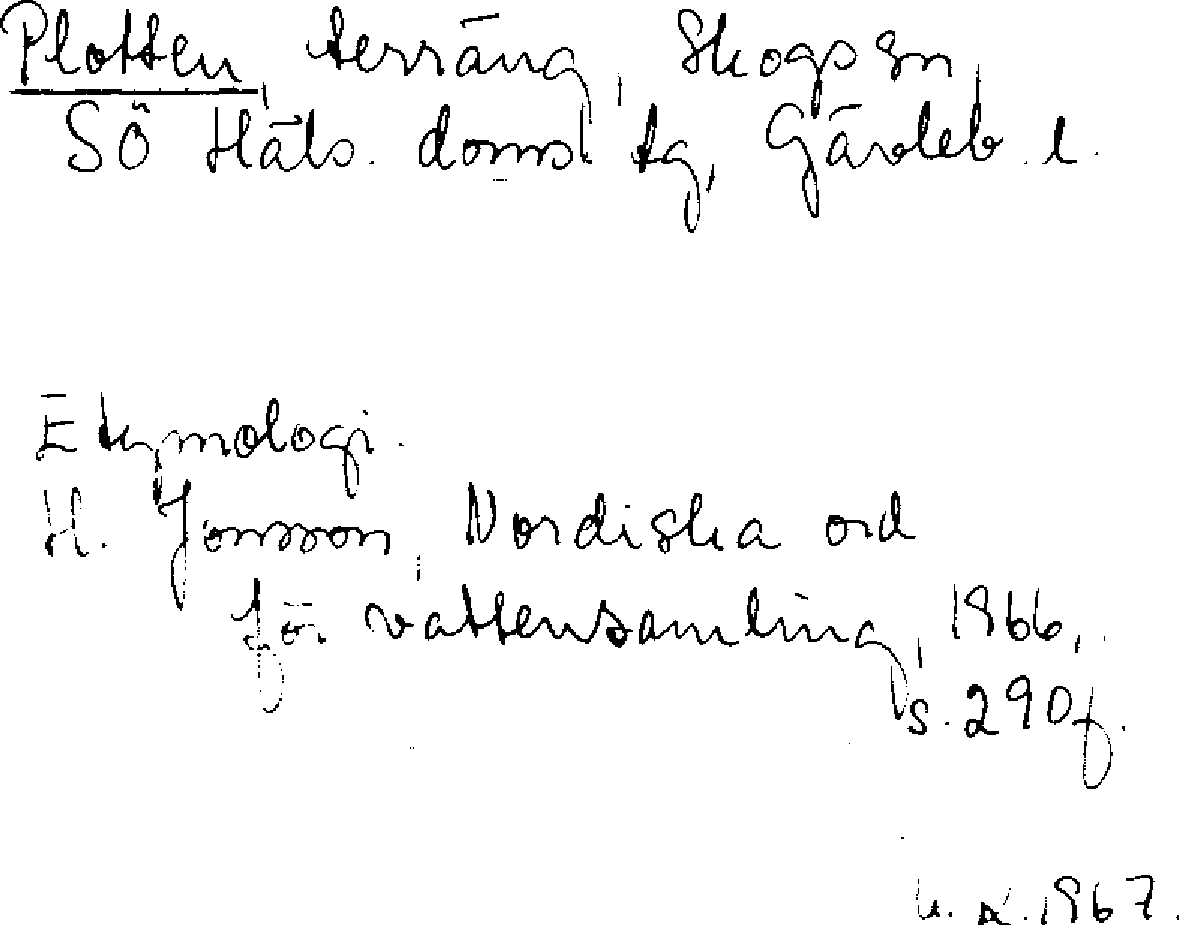 Plotten, terräng, Skogs sn,
SÖ Häls. doms. tg, Gävleb. l.
Etymologi.
H. Jonsson, Nordiska ord
för vattensamling, 1966,
s. 290 f.
1967.